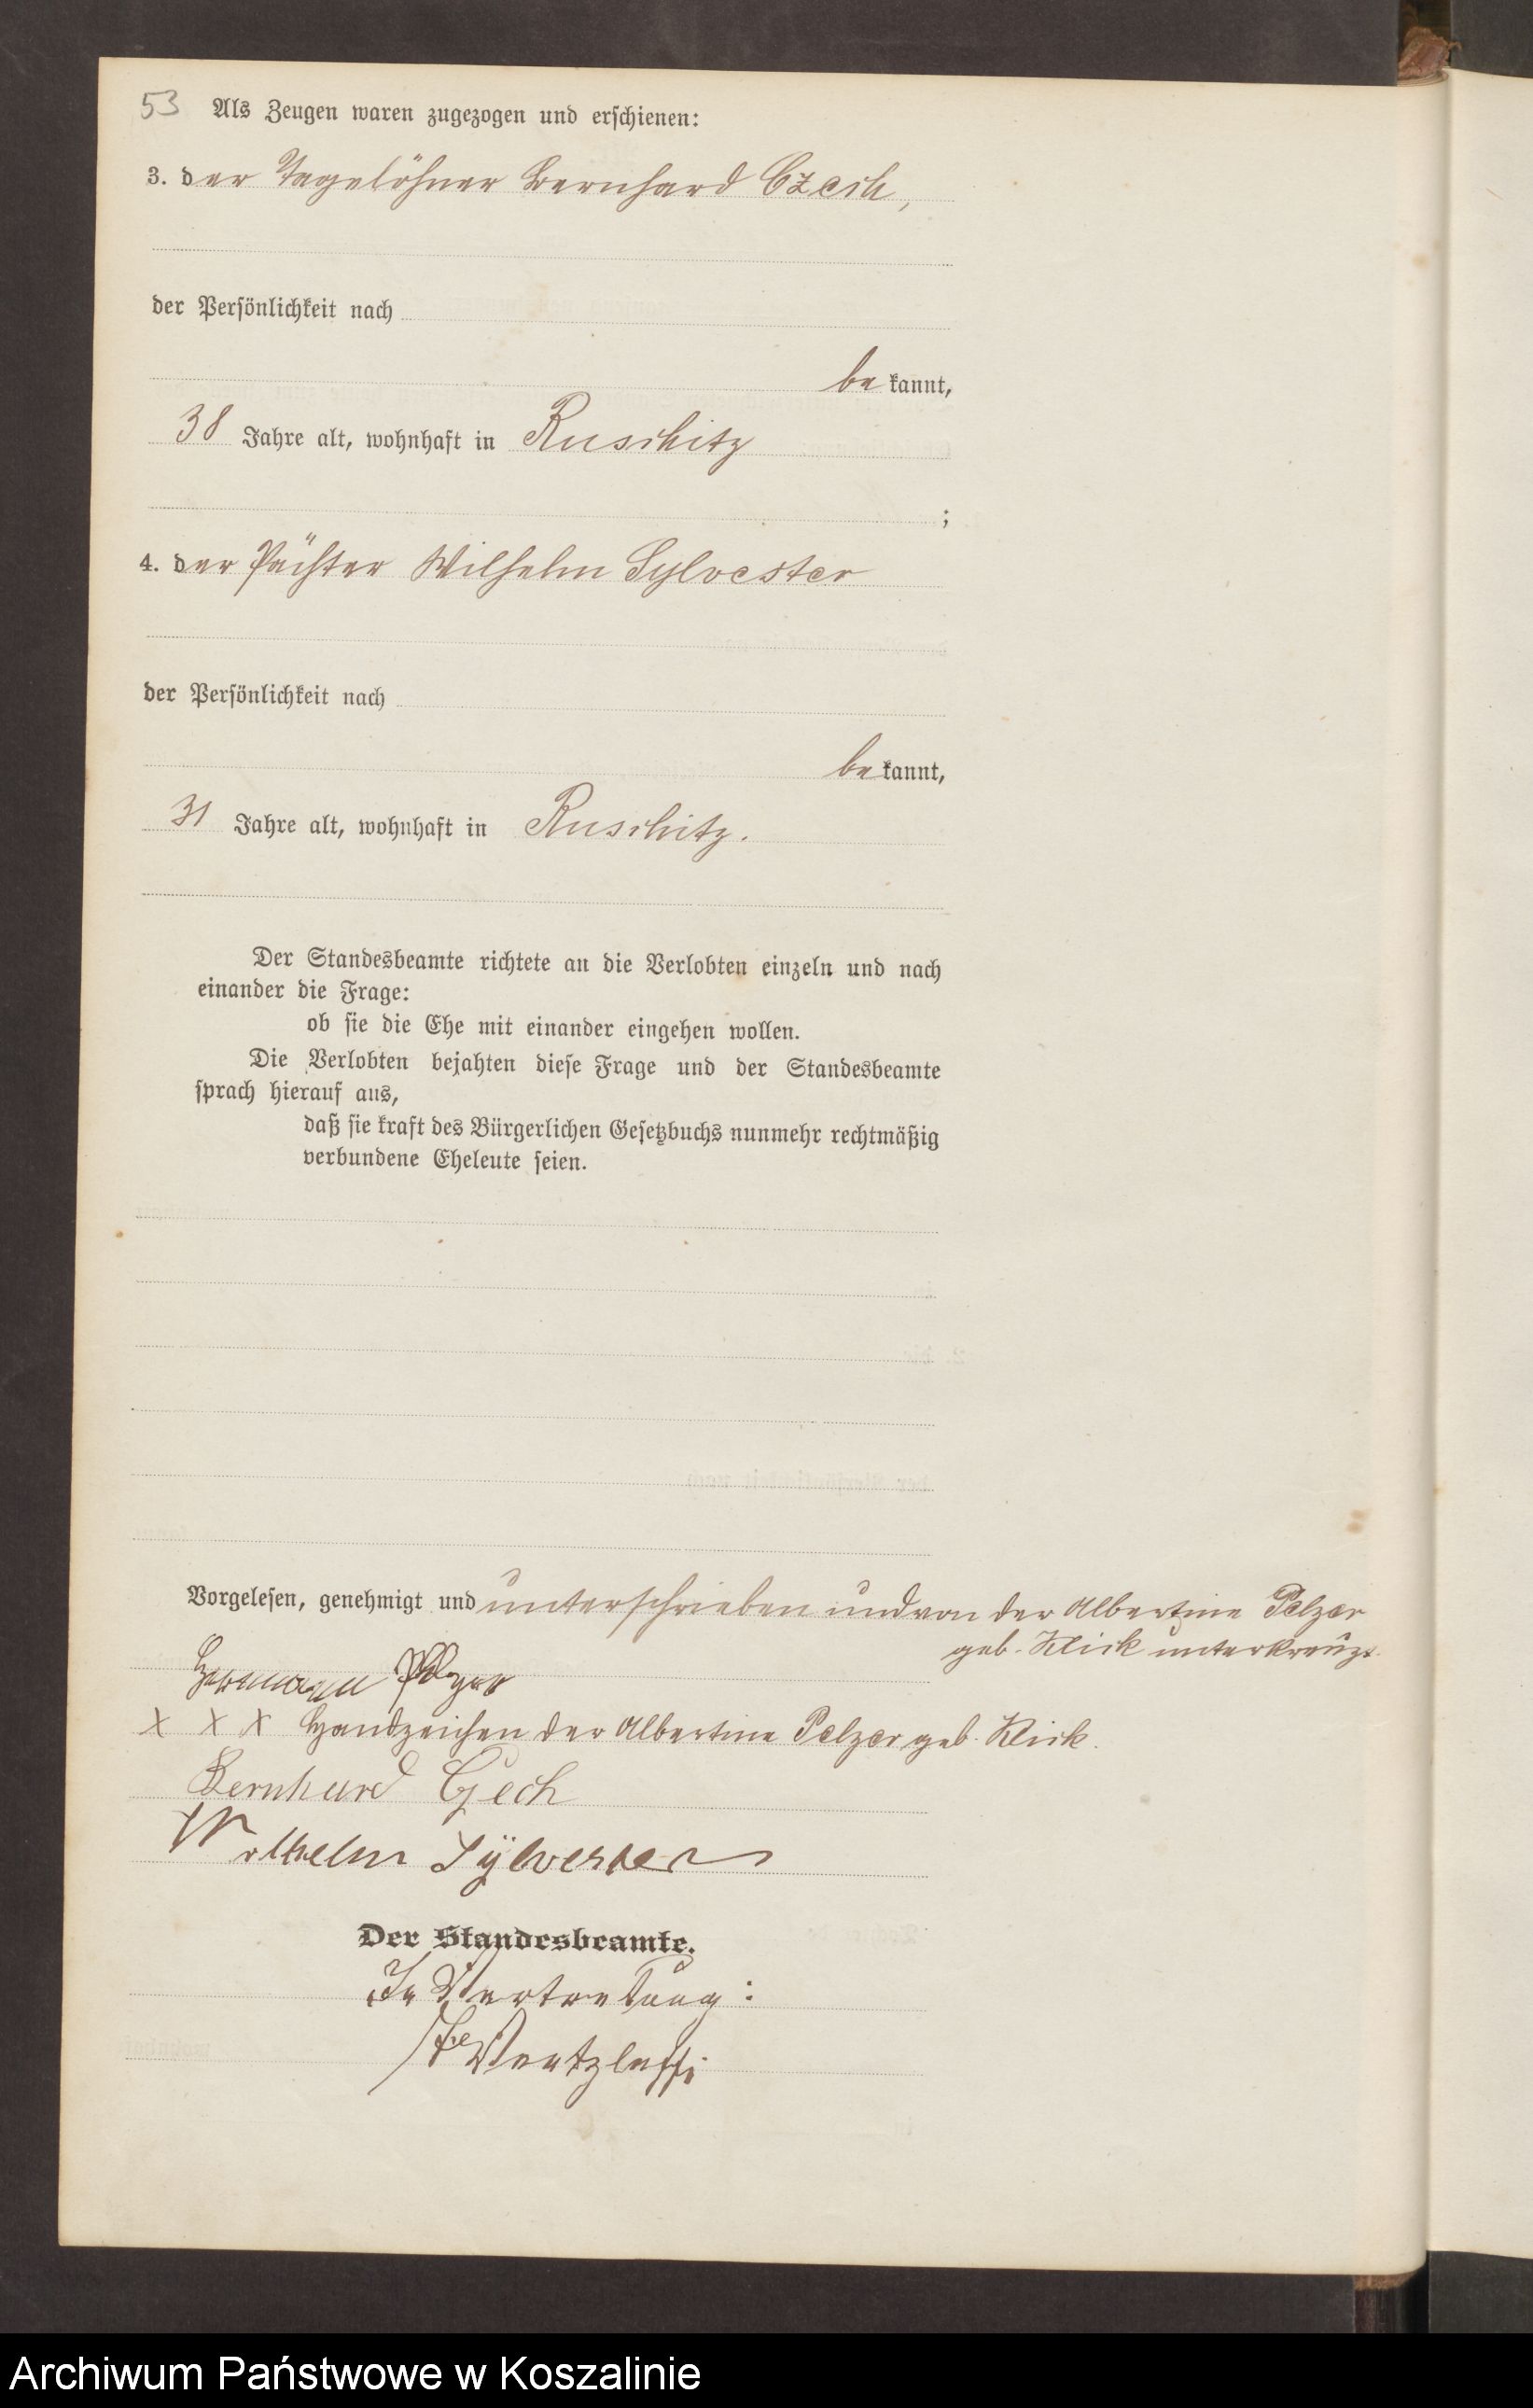 53 Als Zeugen waren zugezogen und erschienen:
3. der Tagelöhner Bernhard Czech,
der Persönlichkeit nach
bekannt,
38 Jahre alt, wohnhaft in Ruschitz
;
4. der Pächter Wilhelm Sylvester
der Persönlichkeit nach
bekannt,
31 Jahre alt, wohnhaft in Ruschitz.
Der Standesbeamte richtete an die Verlobten einzeln und nach
einander die Frage:
ob sie die Ehe mit einander eingehen wollen.
Die Verlobten bejahten diese Frage und der Standesbeamte
sprach hierauf aus,
daß sie kraft des Bürgerlichen Gesetzbuchs nunmehr rechtmäßig
verbundene Eheleute seien.
Vorgelesen, genehmigt und unterschrieben und von der Albertine Pelzer
geb. Klick unterkreuzt.
Hermann Pelzer
X X X Handzeichen der Albertine Pelzer geb. Klick.
Bernhard Czech
Wilhelm Sylvester
Der Standesbeamte.
In Vertretung:
Wentzlaff.
Archiwum Państwowe w Koszalinie